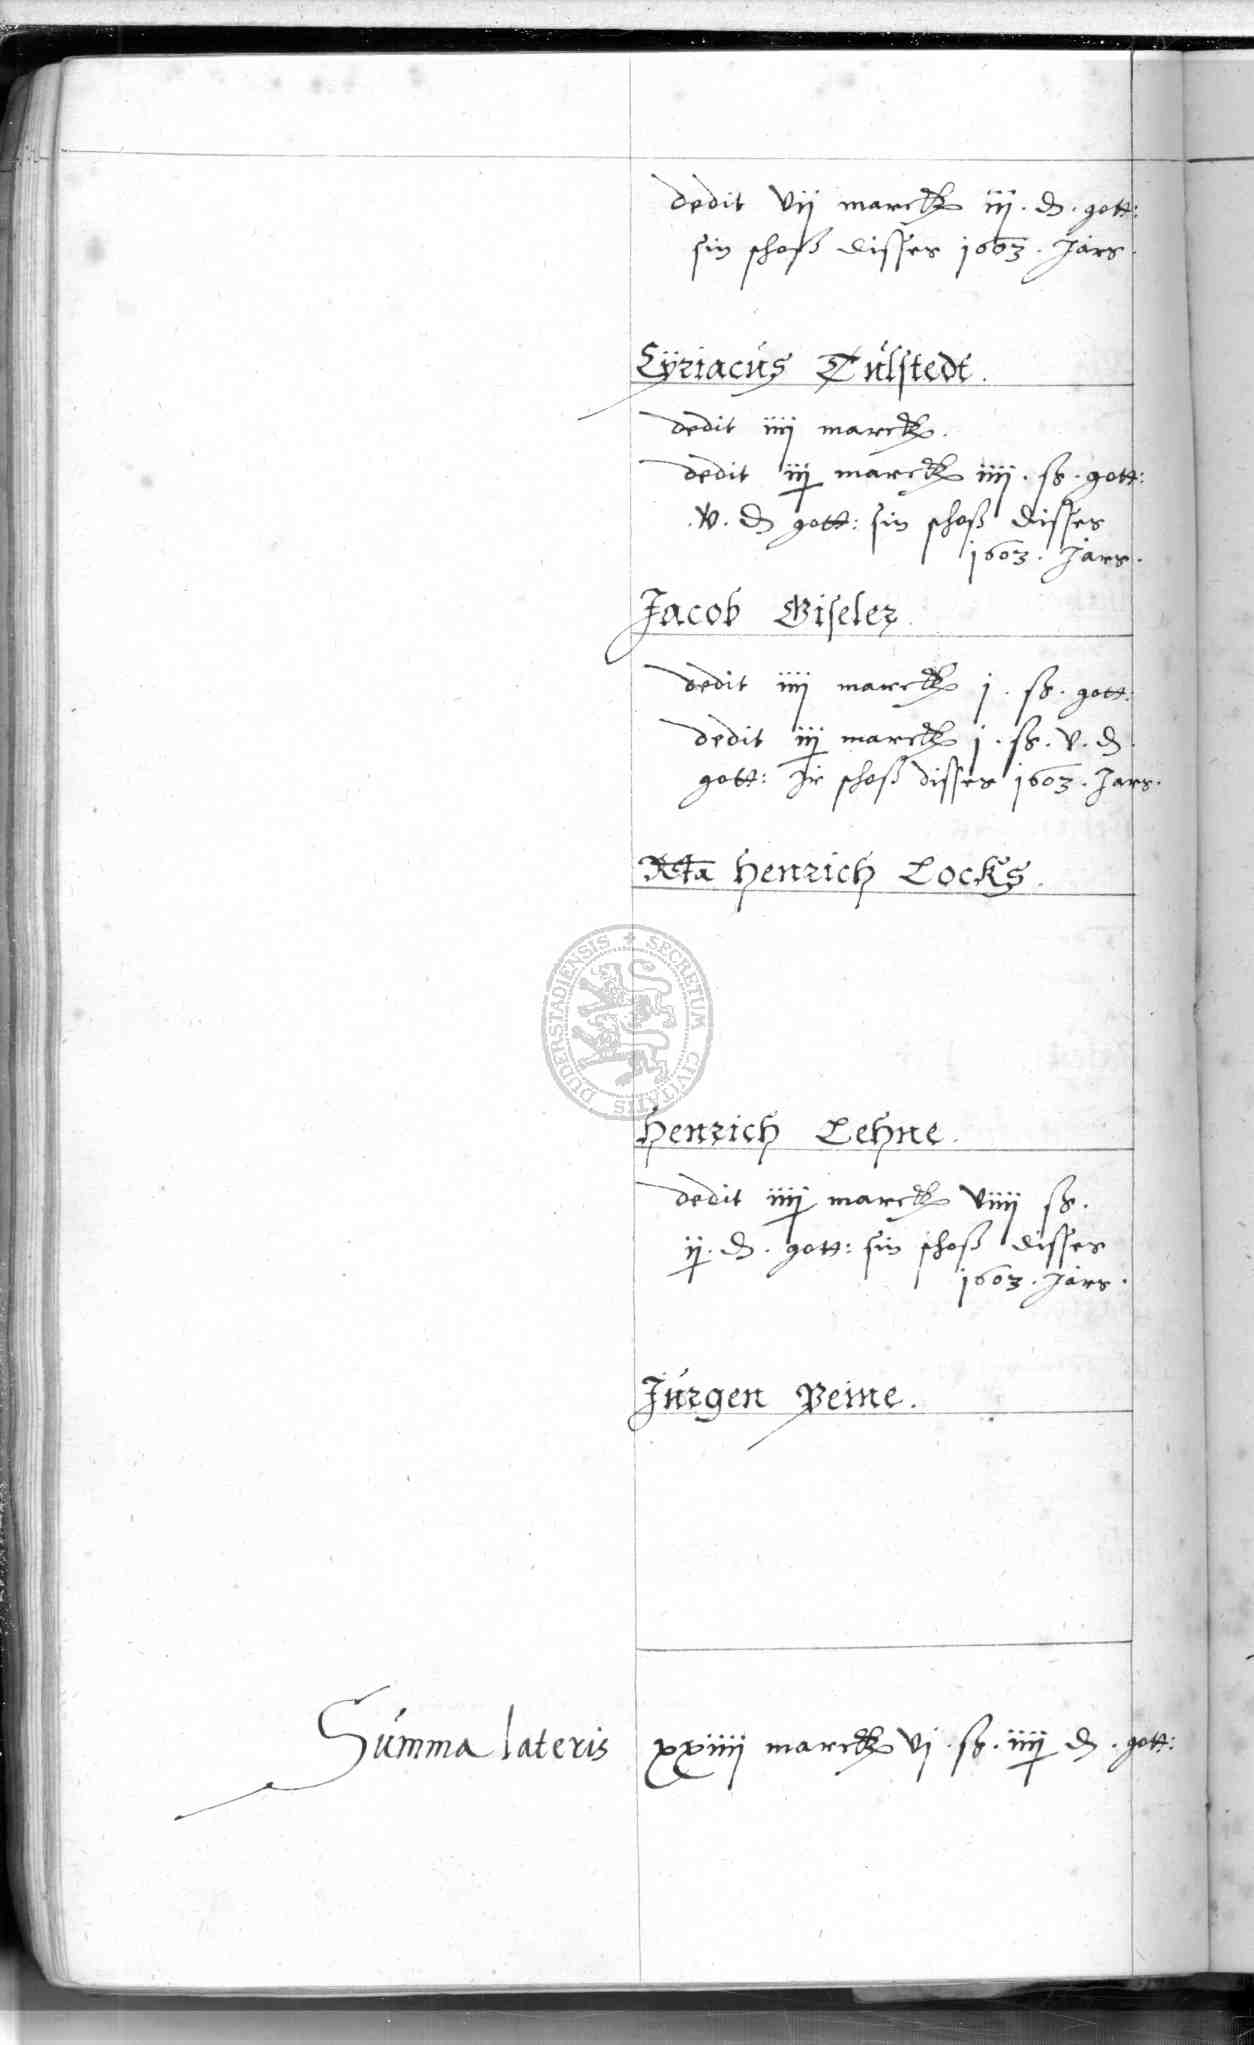 dedit vij marck iij. ₰. gott:
sin schoß disses 1603. Jars.
Cyriacus Tulstedt.
dedit iiij marck.
dedit iij marck iiij. ß. gott:
.v. ₰ gott: sin schoß disses
1603. Jars.
Jacob Giseler.
dedit iiij marck j. ß. gott:
dedit iij marck j. ß. v. ₰.
gott: Jr schoß disses 1603. Jars.
Rcta Henrich Locks.
DUDERSTADIENSIS SECRETUM CIVITATIS
Henrich Lehne.
dedit iiij marck viiij ß.
ij. ₰. gott: sin schoß disses
1603. Jars.
Jurgen Peine.
Summa lateris xxiiij marck vj. ß. iiij ₰. gott: